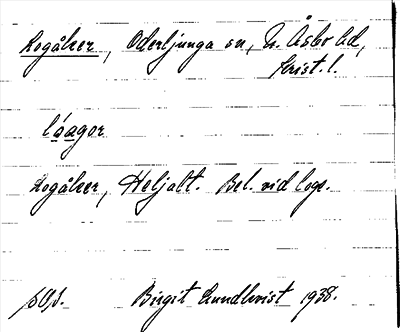 Logåker, Oderljunga sn, N. Åsbo hd,
Krist. l.
lóagor
Logåker, Heljalt. Bel. vid loge.
Birgit Lundkvist 1938.